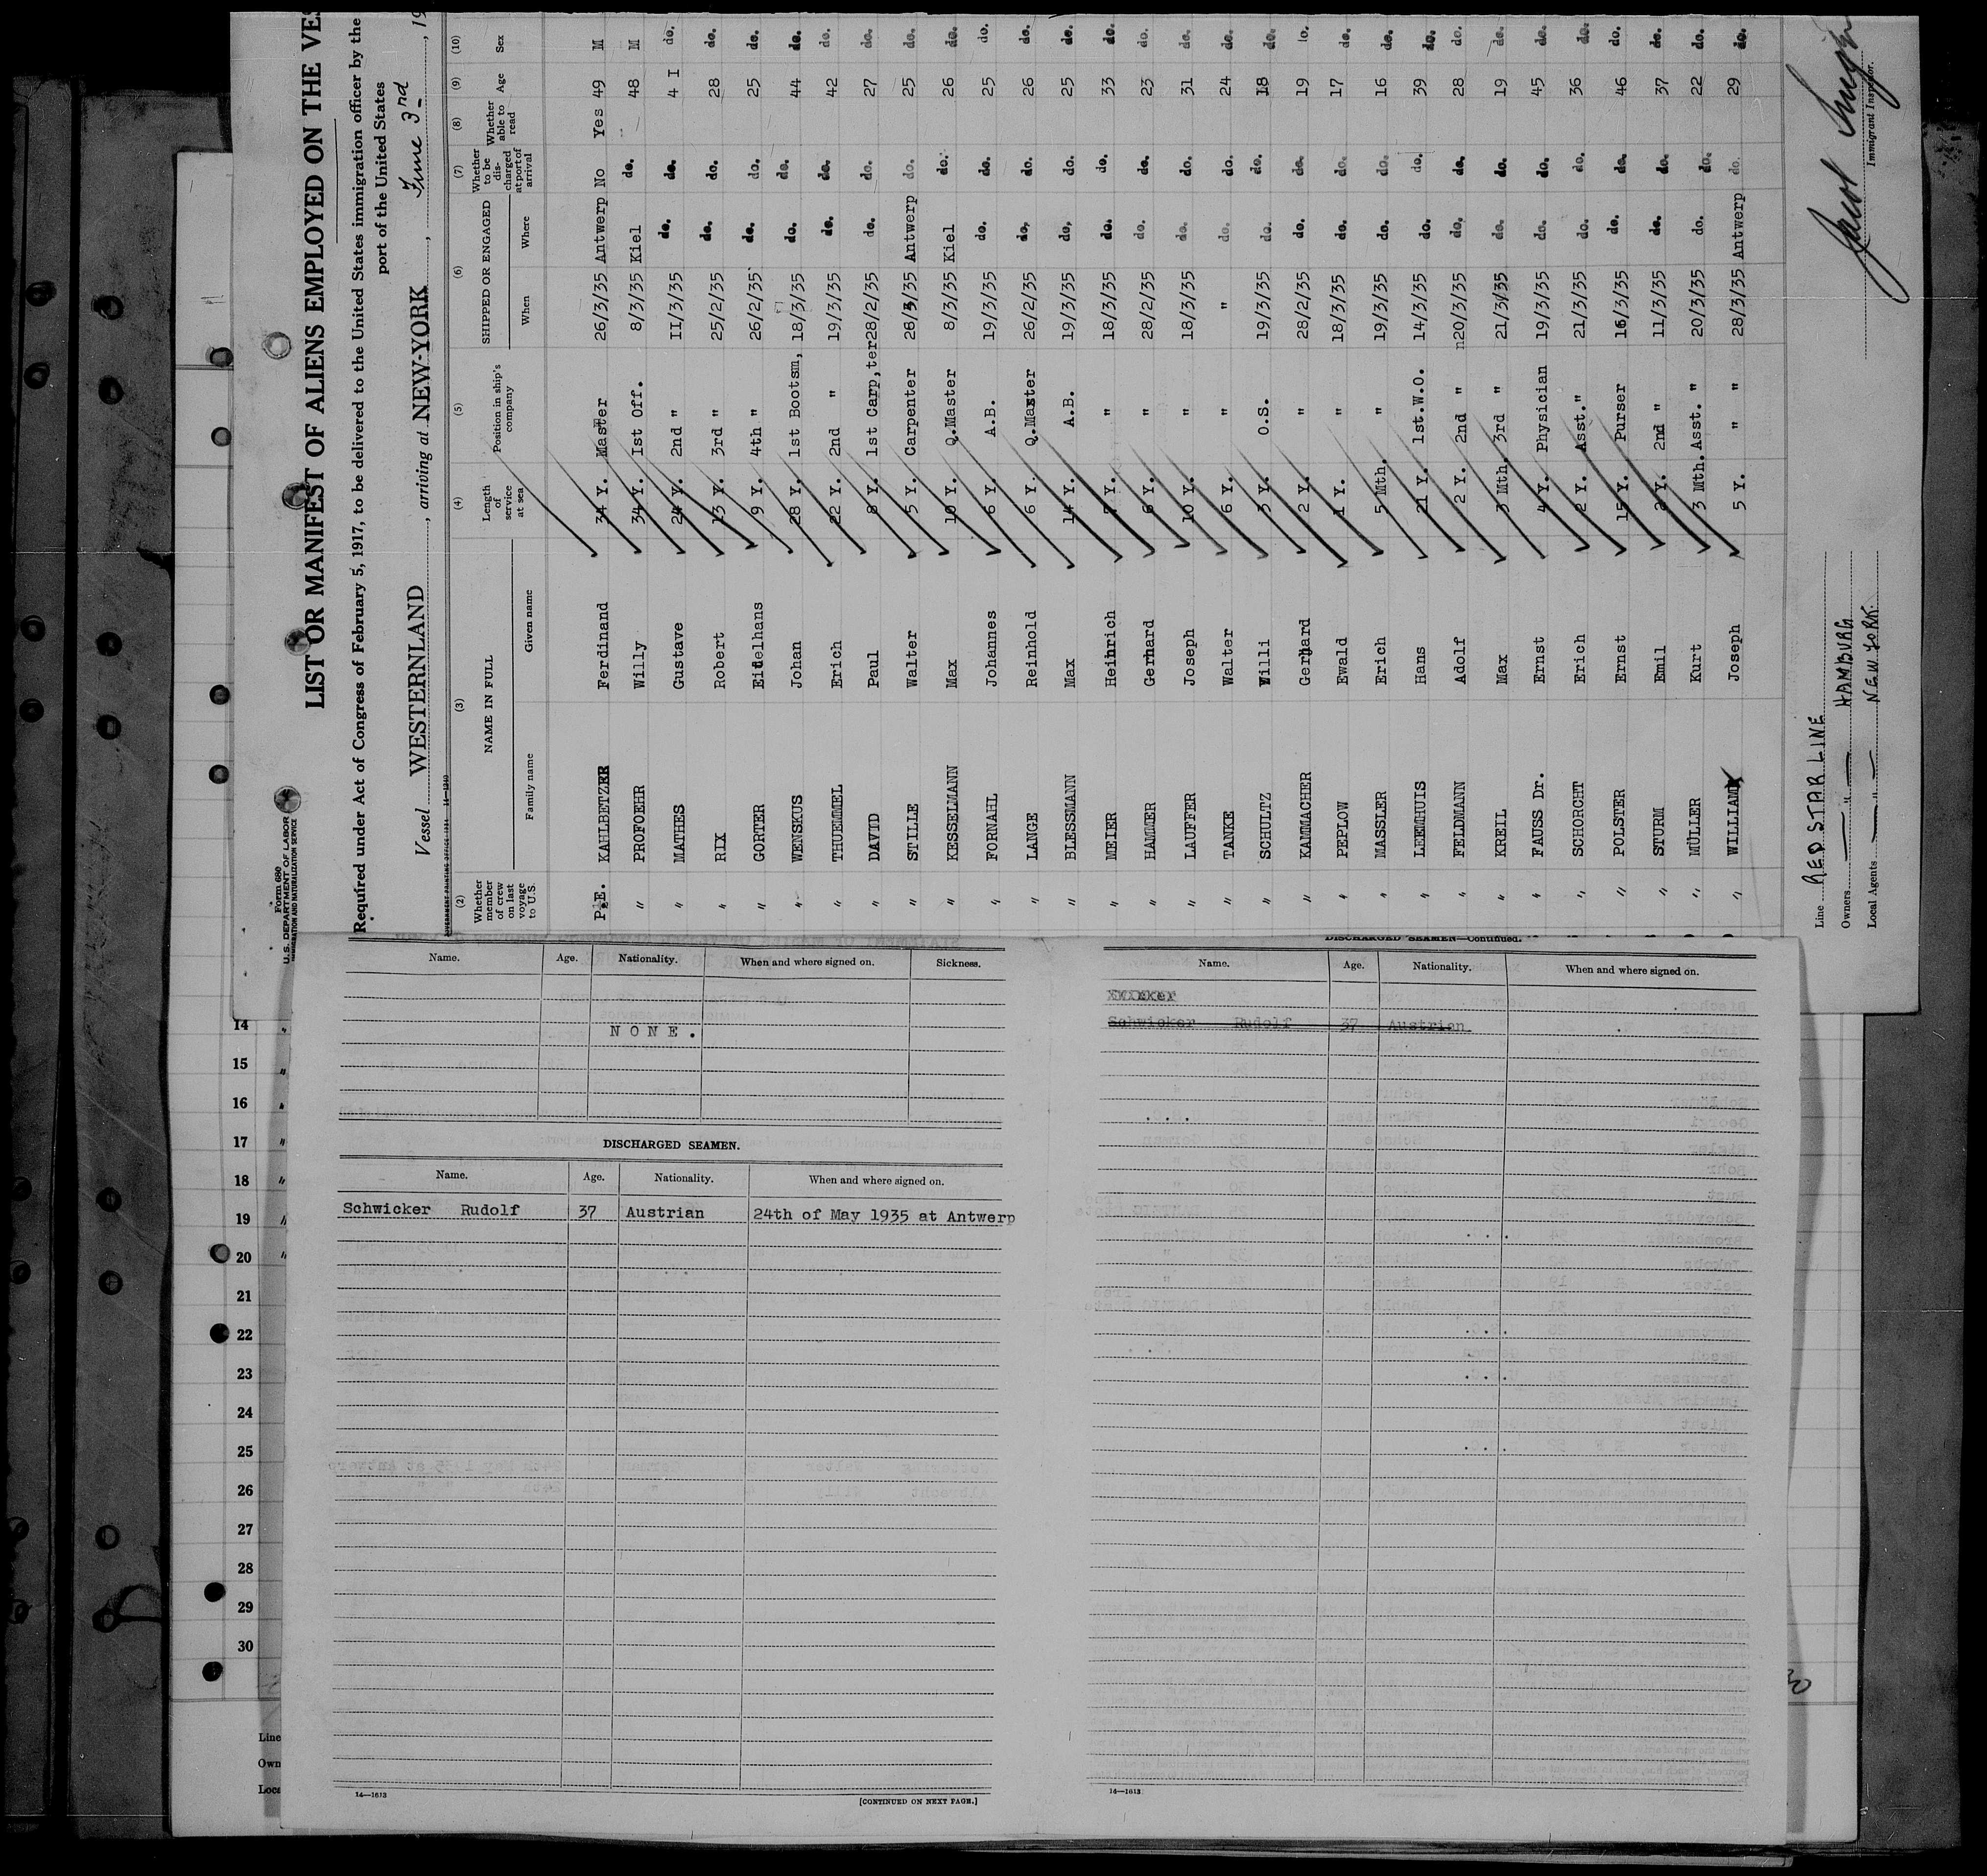 Form 680
U. S. DEPARTMENT OF LABOR
IMMIGRATION AND NATURALIZATION SERVICE
LIST OR MANIFEST OF ALIENS EMPLOYED ON THE VES
Required under Act of Congress of February 5, 1917, to be delivered to the United States immigration officer by the
port of the United States
Vessel WESTERNLAND, arriving at NEW-YORK, June 3rd, 19
(2) (3) (4) (5) (6) (7) (8) (9) (10)
Whether member of crew on last voyage to U.S. NAME IN FULL Family name Given name Length of service at sea Position in ship's company SHIPPED OR ENGAGED When Where Whether to be discharged at port of arrival Whether able to read Age Sex
P.E. KAHLBETZER Ferdinand 34 Y. Master 26/3/35 Antwerp No Yes 49 M
" PROFOEHR Willy 34 Y. 1st Off. 8/3/35 Kiel do. 48 M
" MATHES Gustave 24 Y. 2nd " II/3/35 do. do. 4 I do.
" RIX Robert 13 Y. 3rd " 25/2/35 do. do. 28 do.
" GORTER Eidelhans 9 Y. 4th " 26/2/35 do. do. 25 do.
" WENSKUS Johan 28 Y. 1st Bootsm, 18/3/35 do. do. 44 do.
" THUEMMEL Erich 22 Y. 2nd " 19/3/35 do. do. 42 do.
" DAVID Paul 8 Y. 1st Carp,ter 28/2/35 do. do. 27 do.
" STILLE Walter 5 Y. Carpenter 26/3/35 Antwerp do. 25 do.
" KESSELMANN Max 10 Y. Q.Master 8/3/35 Kiel do. 26 do.
" FORNAHL Johannes 6 Y. A.B. 19/3/35 do. do. 25 do.
" LANGE Reinhold 6 Y. Q.Master 26/2/35 do, do. 26 do.
" BLESSMANN Max 14 Y. A.B. 19/3/35 do, do. 25 do.
" MEIER Heinrich Y. " 18/3/35 do. do. 33 do.
" HAMMER Gerhard 6 Y. " 28/2/35 do. do. 23 do.
" LAUFFER Joseph 10 Y. " 18/3/35 do. do. 31 do.
" TANKE Walter 6 Y. " " do. do. 24 do.
" SCHULTZ Willi 3 Y. O.S. 19/3/35 do. do. 18 do.
" KAMMACHER Gerhard 2 Y. " 28/2/35 do. do. 19 lo.
" PEPLOW Ewald 1 Y. " 18/3/35 do. do. 17 do.
" MASSLER Erich 5 Mth. " 19/3/35 do. do. 16 do.
" LEEMHUIS Hans 21 Y. 1st.W.O. 14/3/35 do. do. 39 do.
" FELDMANN Adolf 2 Y. 2nd " n20/3/35 do. do. 28 do.
" KREIL Max 3 Mth. 3rd " 21/3/35 do. do. 19 do.
" FAUSS Dr. Ernst 4 Y. Physician 19/3/35 do. do. 45 do.
" SCHORCHT Erich 2 Y. Asst." 21/3/35 do. do. 36 do.
" POLSTER Ernst 15 Y. Purser 16/3/35 do. do. 46 do.
" STURM Emil 2 Y. 2nd " 11/3/35 do. do. 37 do.
" MÜLLER Kurt 3 Mth. Asst. " 20/3/35 do. do. 22 do.
" WILLIAM Joseph 5 Y. " " 28/3/35 Antwerp do. 29 do.
Line RED STAR LINE
Owners " HAMBURG
Local Agents " NEW YORK.
Jacob
Immigrant Inspector.
Name. Age. Nationality. When and where signed on. Sickness.
NONE.
DISCHARGED SEAMEN.
Name. Age. Nationality. When and where signed on.
Schwicker Rudolf 37 Austrian 24th of May 1935 at Antwerp
14—1613
[CONTINUED ON NEXT PAGE.]
DISCHARGED SEAMEN—Continued.
Name. Age. Nationality. When and where signed on.
Schwicker Rudolf 37 Austrian
14—1613
14 "
15 "
16 "
17 "
18 "
19 "
20 "
21
22
23
24
25
26
27
28
29
30
Line
Own
Loca